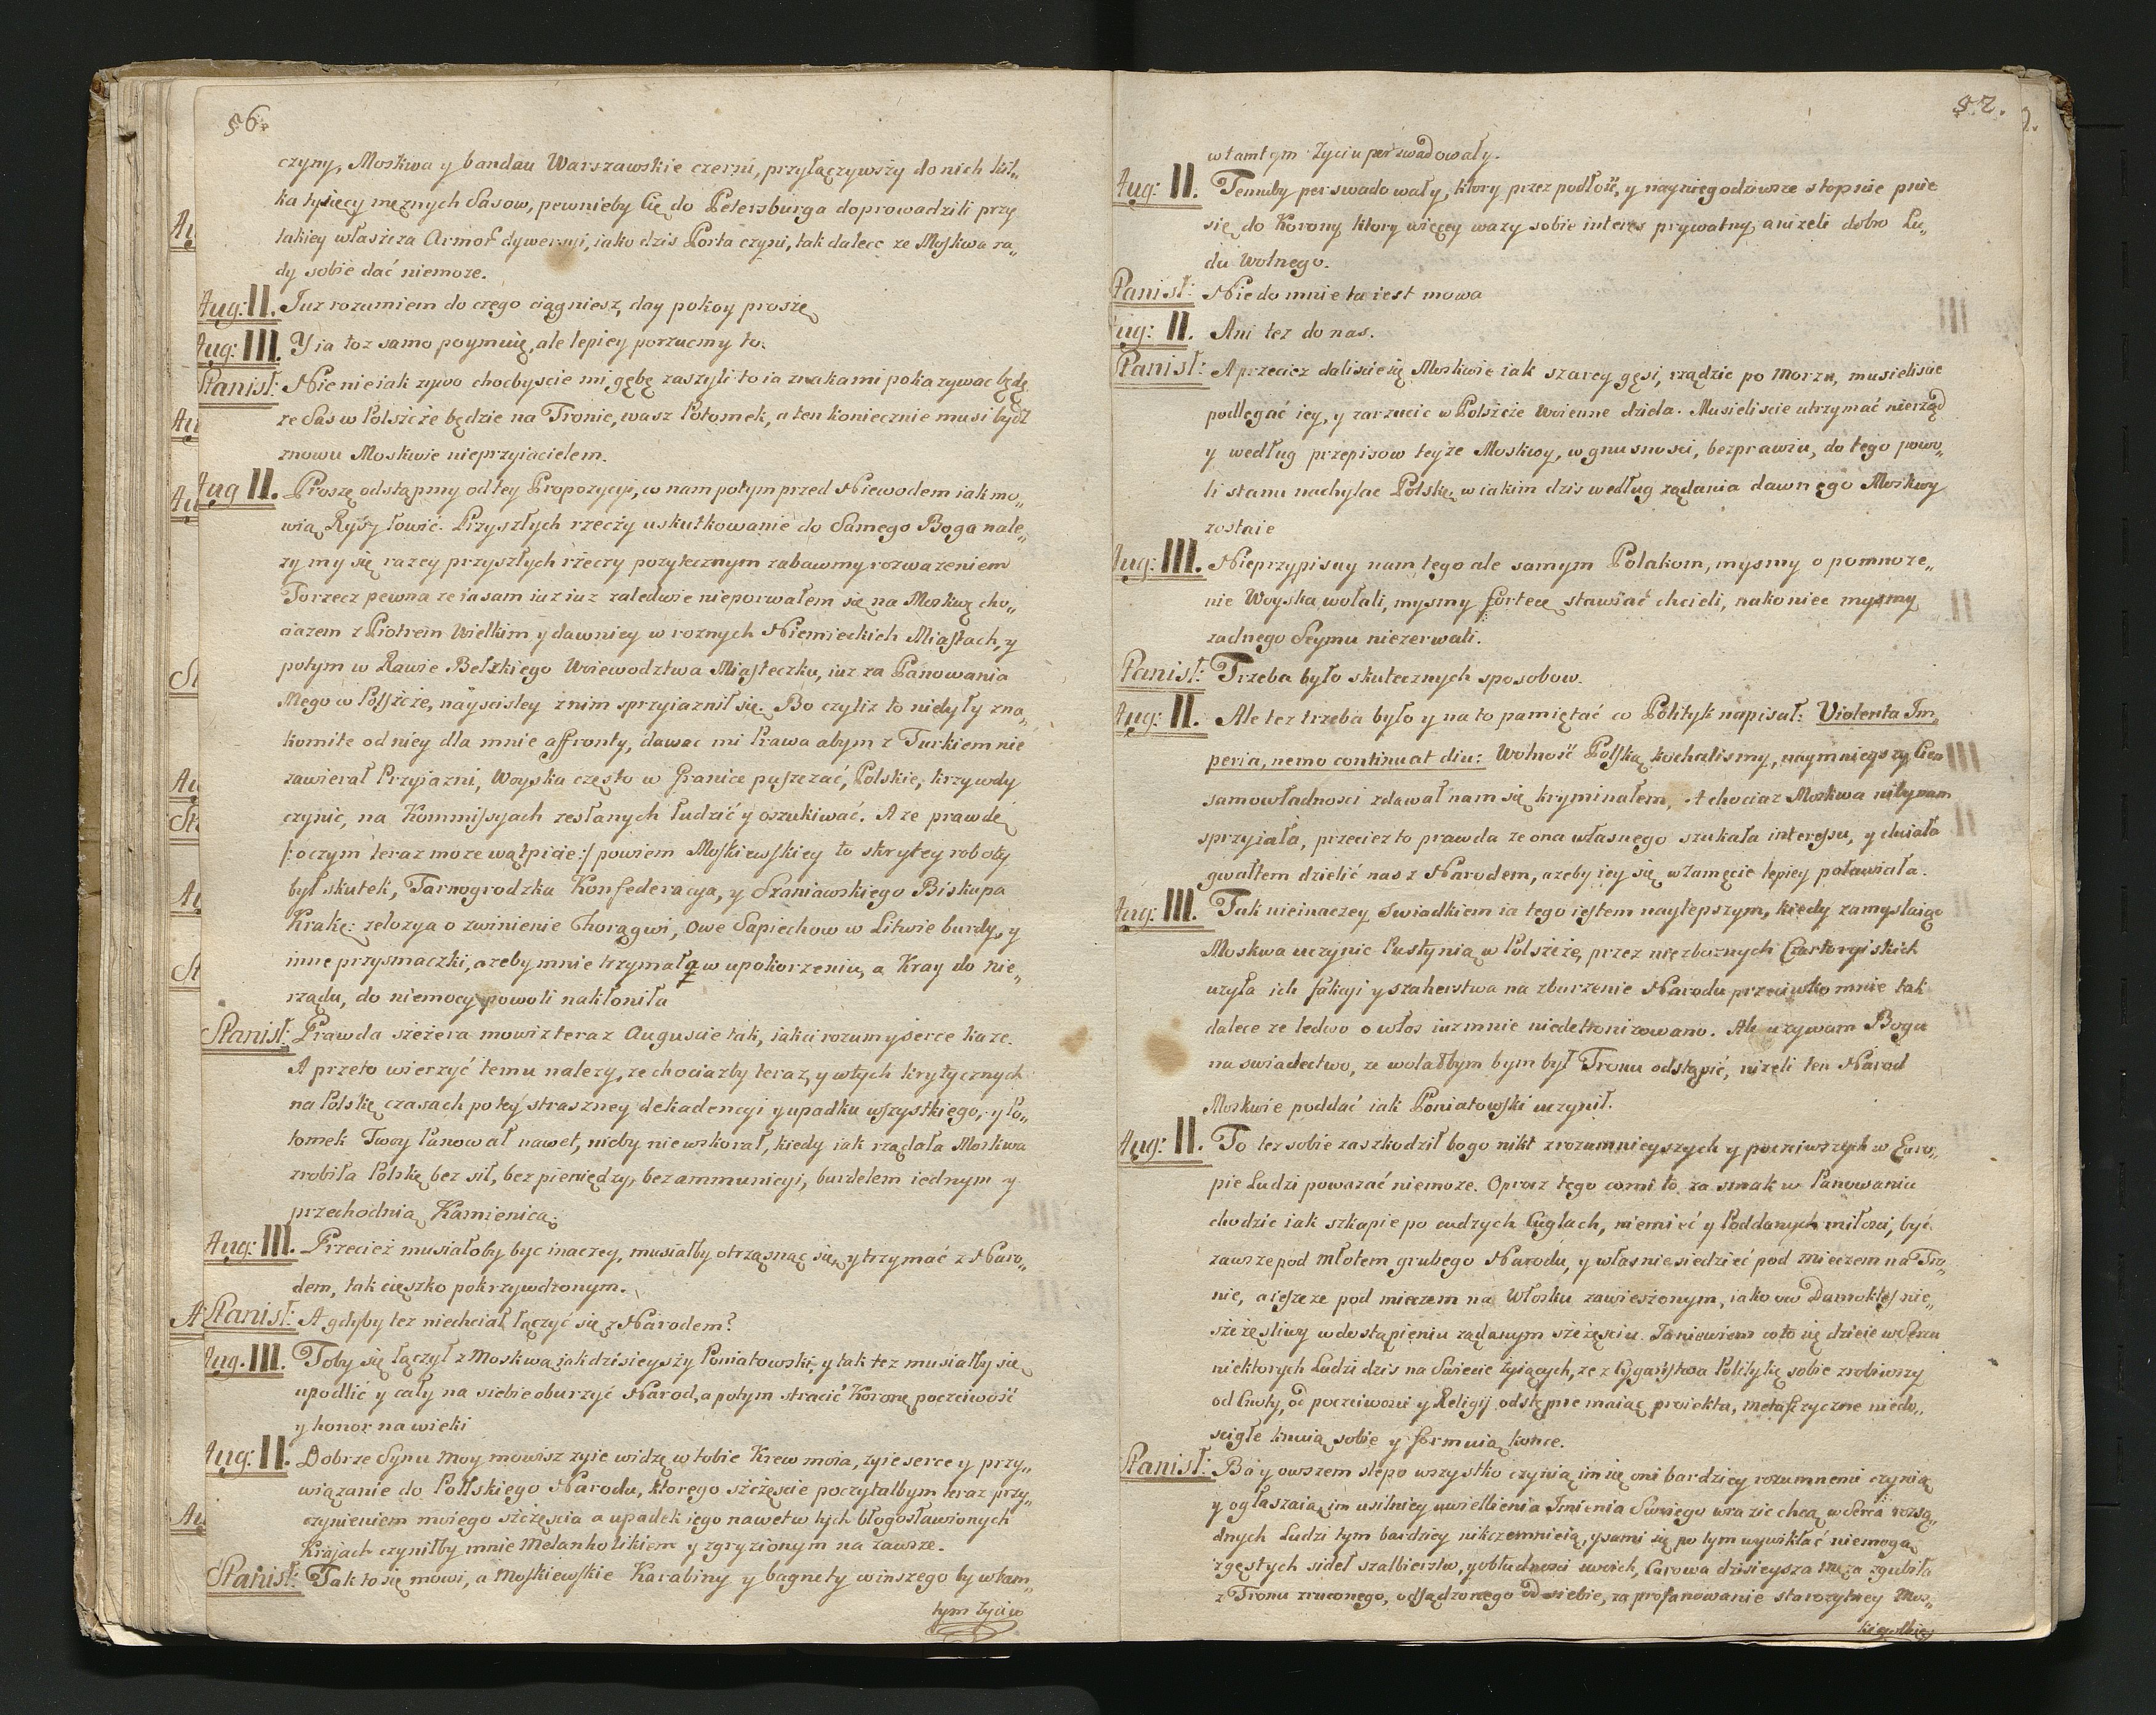 56.
czyny, Moskwa y bandau Warszawskie czerni, przyłączywszy do nich kil„
ka tysięcy mężnych Sasow, pewnieby Cię do Petersburga doprowadzili przy
takiey właszcza Armot dywersyi, iako dzis Porta czyni, tak dalece ze Moskwa ra„
dy sobie dać niemoze.
Aug: II. Iuz rozumiem do czego ciągniesz, day pokoy proszę
Aug: III. Y ia toz samo poymuię, ale lepiey porzucmy to.
Stanisł: Nie nieiak zywo chocbyscie mi gębę zaszyli to ia znakami pokazywac będę
ze Sas w Polszcze będzie na Tronie, wasz Potomek, a ten koniecznie musi bydz
znowu Moskwie nieprzyiacielem.
Aug II. Proszę odstąpmy od tey Propozycyi, co nam potym przed Niewodem iak mo„
wią Ryby łowic. Przyszłych rzeczy uskutkowanie do Samego Boga nale„
zy my się razey przyszłych rzeczy pozytecznym zabawmy rozwazeniem
To rzecz pewna ze ia sam iuz iuz zaledwie nieporwałem się na Moskwę cho„
ciazem z Piotrem Wielkim y dawniey w roznych Niemieckich Miastach, y
potym w Rawie Bełzkiego Woiewodztwa Miasteczku, iuz za Panowania
Mego w Polszcze, nayscisley z nim sprzyiaznił się. Bo czyliz to niebyły zna„
komite od niey dla mnie affronty, dawac mi Prawa abym z Turkiem nie
zawierał Przyiazni, Woyska często w Granice puszczać, Polskie, krzywdy
czynic, na Kommissyach zesłanych łudzić y oszukiwać. A ze prawdę
/: o czym teraz moze wątpicie :/ powiem Moskiewskiey to skrytey roboty
był skutek, Tarnogrodzka Konfederacya, y Szaniawskiego Biskupa
Krakę: zelozya o zwinienie Chorągwi, Owe Sapiechow w Litwie burdy, y
inne przysmaczki, azeby mnie trzymała w upokorzeniu, a Kray do nie„
rządu, do niemocy powoli nakłoniła
Stanisł: Prawda szczera mowisz teraz Auguscie tak, iak ci rozum y serce kaze.
A przeto wierzyć temu nalezy, ze chociazby teraz, y w tych krytycznych
na Polskę czasach po tey straszney dekadencyi y upadku wszystkiego, y Po„
tomek Twoy Panował nawet, nicby niewskorał, kiedy iak ządała Moskwa
zrobiła Polskę bez sił, bez pieniędzy, bez ammunicyi, burdelem iednym y
przechodnią Kamienicą.
Aug: III. Przeciez musiałoby byc inaczey, musiałby otrząsnąć się, y trzymać z Naro„
dem, tak cięszko pokrzywdzonym.
Stanisł: A gdyby tez niechciał łączyć się z Narodem?
Aug. III. Toby się łączył z Moskwą iak dzisieyszy Poniatowski, y tak tez musiałby się
upodlić y cały na siebie oburzyć Narod, a potym stracić Koronę poczciwość
y honor na wieki
Aug: II. Dobrze Synu Moy mowisz zyie widzę w tobie Krew moia, zyie serce y przy„
wiązanie do Polskiego Narodu, ktorego szczęscie poczytałbym teraz przy„
czynieniem moiego szczęscia a upadek iego nawet w tych błogosławionych
Kraiach czyniłby mnie Melankolikiem y zgryzionym na zawsze.
Stanisł: Tak to się mowi, a Moskiewskie Karabiny y bagnety w inszego by w tam„
tym Zyciu
57.
w tamtym Zyciu perswadowały.
Aug: II. Temuby perswadowały, ktory przez podłość, y nayniegodziwsze stopnie pnie
się do Korony, ktory więcey wazy sobie interes prywatny, anizeli dobro Lu„
du Wolnego.
Stanisł: Nie do mnie ta iest mowa
Aug: II. Ani tez do nas.
Stanisł: A przeciez daliscie się Moskwie iak szarey gęsi, rządzic po Morzu, musieliscie
podlegać iey, y zarzucic w Polszcze Woienne dzieła. Musieliscie utrzymać nierząd
y według przepisow teyze Moskwy, w gnusnosci, bezprawiu, do tego powo„
li stanu nachylac Polskę, w iakim dzis według ządania dawnego Moskwy
zostaie
Aug: III. Nieprzypisuy nam tego ale samym Polakom, mysmy o pomnoze„
nie Woyska wołali, mysmy fortece stawiać chcieli, nakoniec mysmy
zadnego Seymu niezerwali.
Stanisł: Trzeba było skutecznych sposobow.
Aug: II. Ale tez trzeba było y na to pamiętać co Polityk napisał: Violenta Im„
peria, nemo continuat diu: Wolność Polską kochalismy, naymnieyszy Cien
samowładnosci zdawał nam się kryminałem, A chociaz Moskwa niby nam
sprzyiała, przeciez to prawda ze ona własnego szukała interessu, y chciała
gwałtem dzielić nas z Narodem, azeby iey się w zamęcie lepiey poławiała.
Aug: III. Tak nieinaczey, Swiadkiem ia tego iestem naylepszym, kiedy zamyslaiąc
Moskwa uczynic Pustynią w Polszcze, przez niezboznych Czartoryiskich
uzyła ich fakcyi y szaherstwa na zburzenie Narodu przeciwko mnie tak
dalece ze ledwo o włos iuz mnie niedetronizowano. Ale uzywam Boga
na swiadectwo, ze wolałbym bym był Tronu odstąpić, nizeli ten Narod
Moskwie poddać iak Poniatowski uczynił.
Aug: II. To tez sobie zaszkodził bo go nikt z rozumnieyszych y poczciwszych w Euro„
pie Ludzi powazać niemoze. Oprocz tego co mi to za smak w Panowaniu
chodzic iak szkapie po cudzych Cuglach, niemieć y Poddanych miłosci, być
zawsze pod Młotem grubego Narodu, y własnie siedzieć pod mieczem na Tro„
nie, a ieszcze pod mieczem na Włosku zawieszonym, iako ow Damokles nie„
szczęsliwy w dostąpieniu ządanym szczęsciu. Ia niewiem co to się dzieie w Sercu
niektorych Ludzi dzis na Swiecie zyiących, ze z Cygaństwa Politykę sobie zrobiwszy
od Cnoty, od poczciwosci y Religij odstępne maiąc proiekta, metafizyczne niedo„
scigłe knuią sobie y formuią konce.
Stanisł: Ba y owszem slepo wszystko czynią im się oni bardziey rozumnemi czynią
y ogłaszaią im usilniey uwielbienia Imienia Swoiego wrazic chcą w Serca rozsą„
dnych Ludzi tym bardziey nikczemnieią, y sami się po tym wywikłać niemogą
z gęstych sideł szalbierstw, y obłudnosci swoich, Carowa dzisieysza męza zgubiła
z Tronu zrzuconego, odsądzonego od siebie, za profanowanie starozytney Mos„